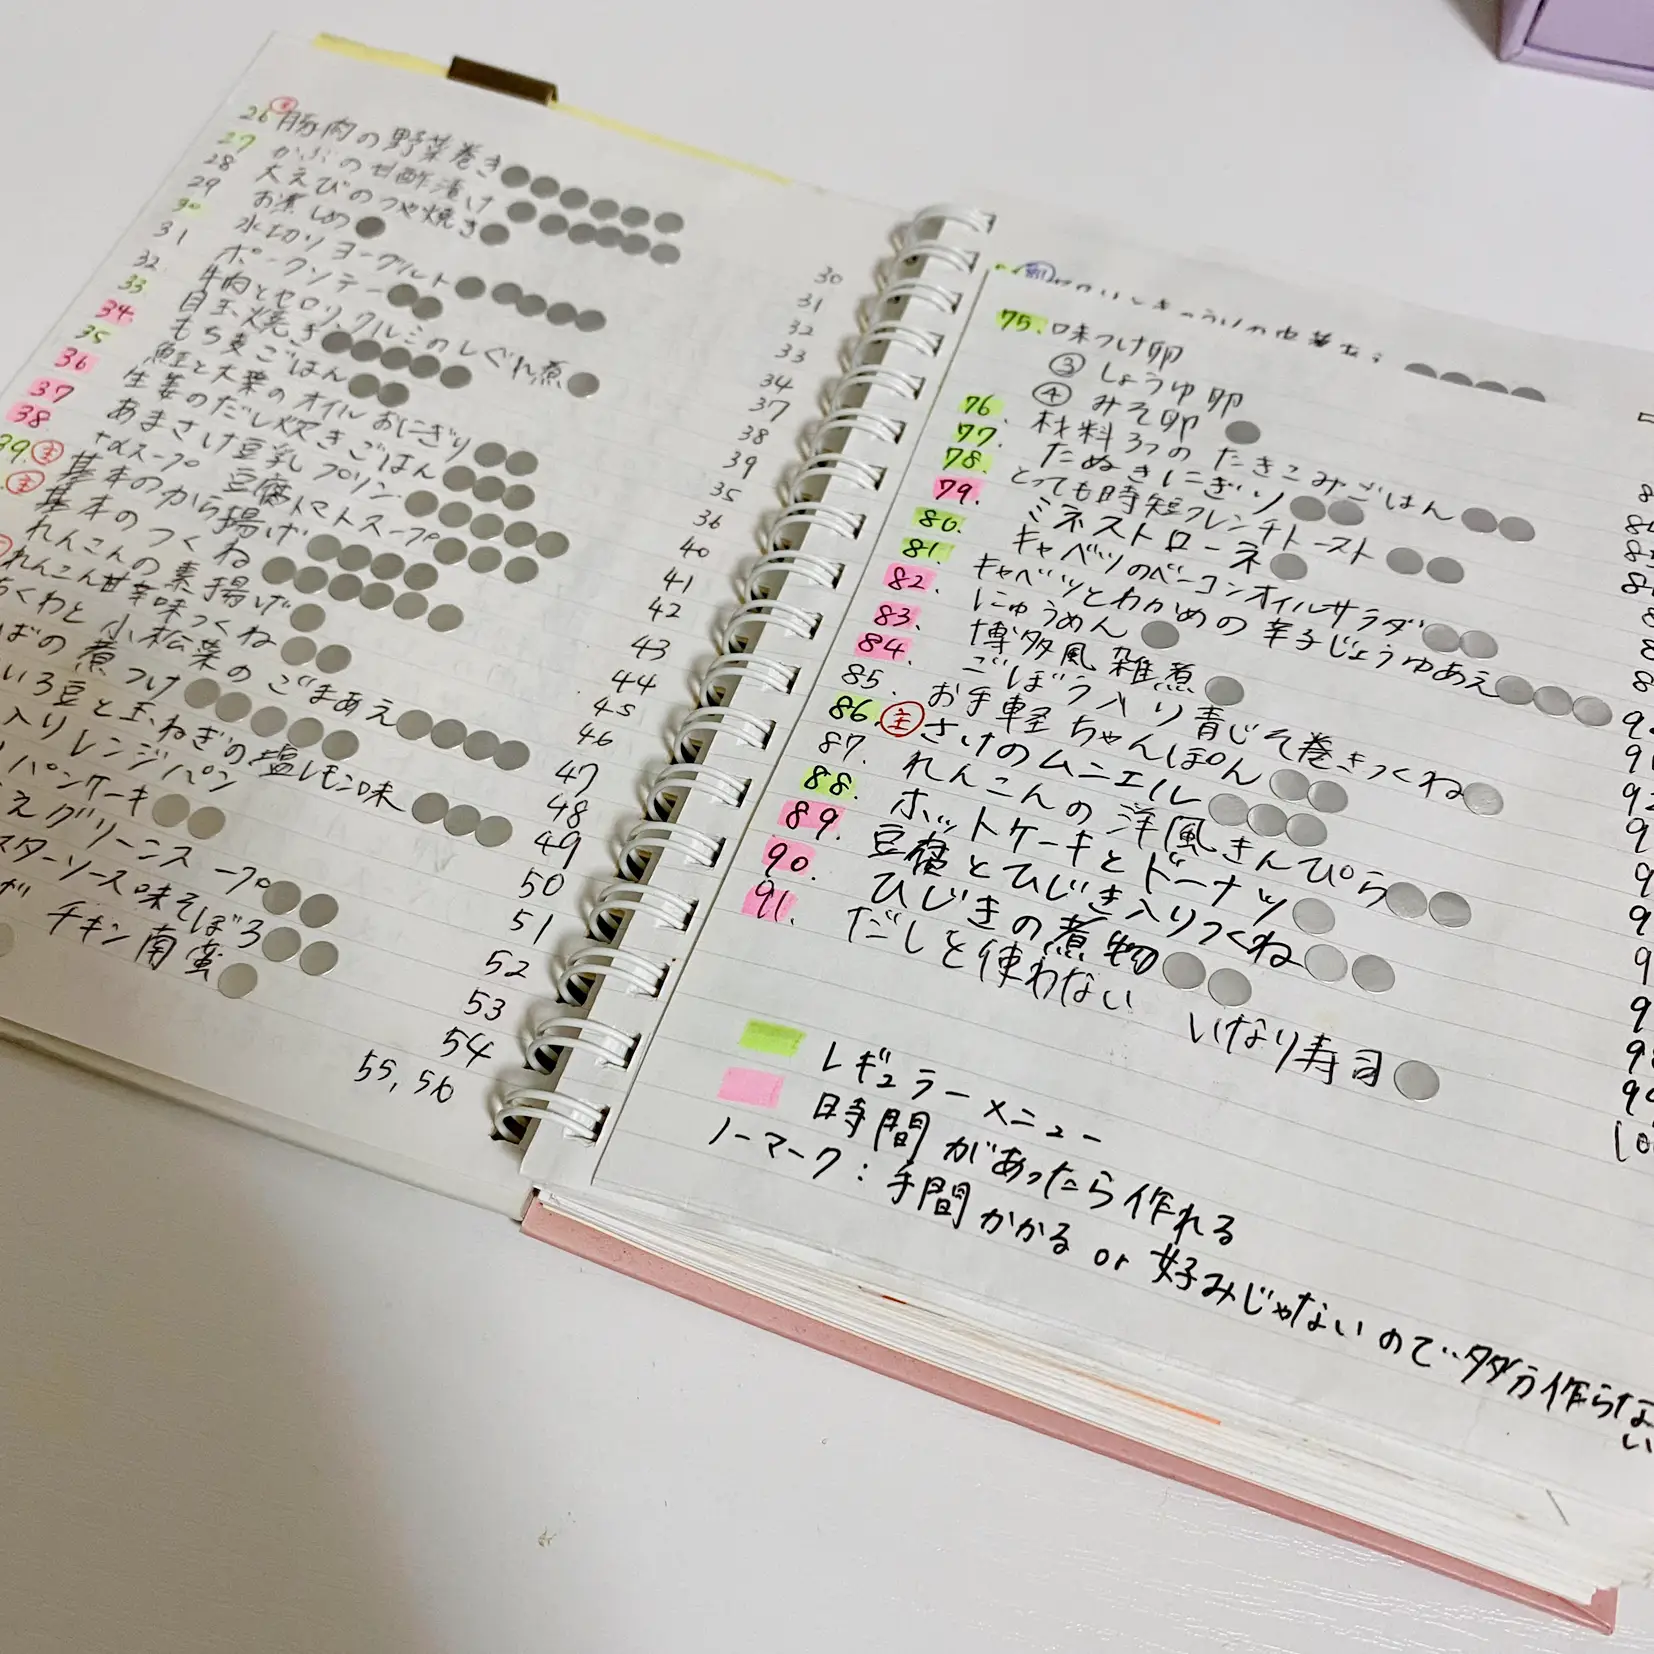 26 主 豚肉の野菜巻き 30
27 かぶの甘酢漬け 31
28 大えびのつや焼き 32
29 お煮しめ 33
30 水切りヨーグルト 34
31 ポークソテー 37
32 牛肉とセロリ、クルミのしぐれ煮 38
33 目玉焼き 39
34 もち麦ごはん 35
35 鮭と大葉のオイルおにぎり 36
36 生姜のだし炊きごはん 40
37 あまさけ豆乳プリン 41
38 +αスープ 豆腐トマトスープ 42
39. 主 基本のから揚げ 43
主 基本のつくね 44
れんこんの素揚げ 45
れんこん甘辛味つくね 46
ちくわと小松菜のごまあえ 47
ばの煮つけ 48
いろ豆と玉ねぎの塩レモン味 49
入りレンジパン 50
パンケーキ 51
えグリーンスープ 52
スターソース味そぼろ 53
が チキン南蛮 54
55, 56
75. 味つけ卵
③ しょうゆ卵
④ みそ卵
76. 材料3つのたきこみごはん
77. たぬきにぎり
78. とっても時短フレンチトースト
79. ミネストローネ
80. キャベツのベーコンオイルサラダ
81. キャベツとわかめの辛子じょうゆあえ
82. にゅうめん
83. 博多風雑煮
84. ごぼう入り青じそ巻きつくね
85. お手軽ちゃんぽん
86. 主 さけのムニエル
87. れんこんの洋風きんぴら
88. ホットケーキとドーナツ
89. 豆腐とひじき入りつくね
90. ひじきの煮物
91. だしと使わない いなり寿司
レギュラーメニュー
時間があったら作れる
ノーマーク:手間かかる or 好みじゃないので‥多分作らな
い